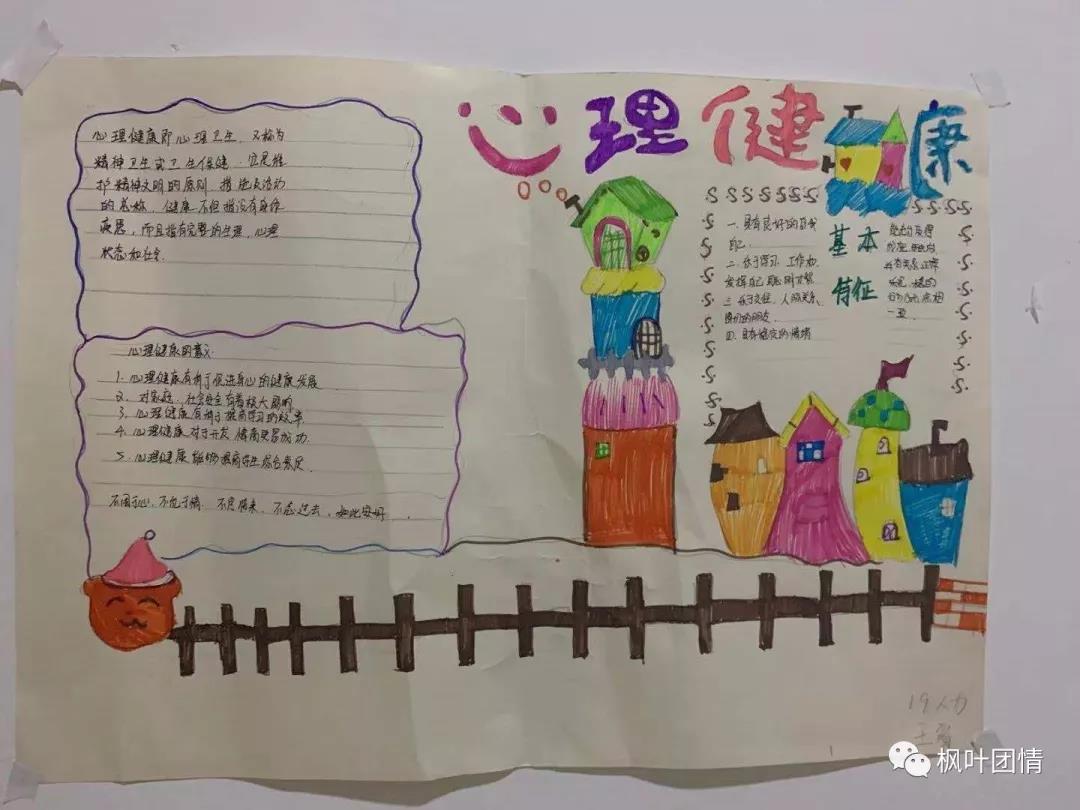 心理健康
心理健康即心理卫生，又称为
精神卫生或卫生保健，它是维
护精神文明的原则、措施及活动
的总称，健康不但指没有身体
疾患，而且指有完整的生理、心理
状态和社会
心理健康的意义
1. 心理健康有利于促进身心的健康发展
2. 对家庭、社会安全有着极大影响
3. 心理健康有利于提高学习的效率
4. 心理健康对于开发
5. 心理健康能够提高学生综合素质
不困于心、不乱于情、不畏将来、不念过去，如此安好
基本
特征
一、具有良好的自我
二、乐于学习、工作
发挥自己聪明才智
三、乐于交往，人际关系
的朋友
四、具有稳定的情绪
一致
19人力
枫叶团情